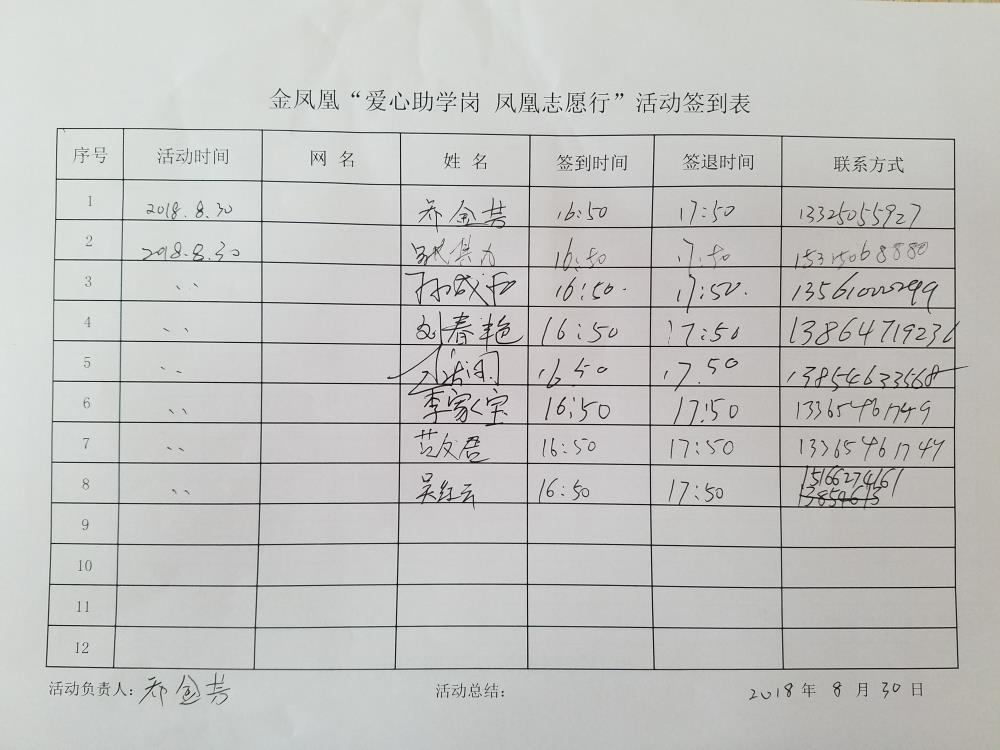 金凤凰“爱心助学岗 凤凰志愿行”活动签到表
序号 活动时间 网 名 姓 名 签到时间 签退时间 联系方式
1 2018.8.30 16:50 17:50 13325055927
2 2018.8.30 16:50 17:50
3 、、 16:50. 17:50.
4 、、 刘春艳 16:50 17:50 13864719236
5 、、 16.50 17.50 13854633568
6 、、 李家宝 16:50 17:50 13365461749
7 、、 16:50 17:50 13365461747
8 、、 吴红云 16:50 17:50 15166274161
9
10
11
12
活动负责人: 活动总结: 2018 年 8 月 30 日